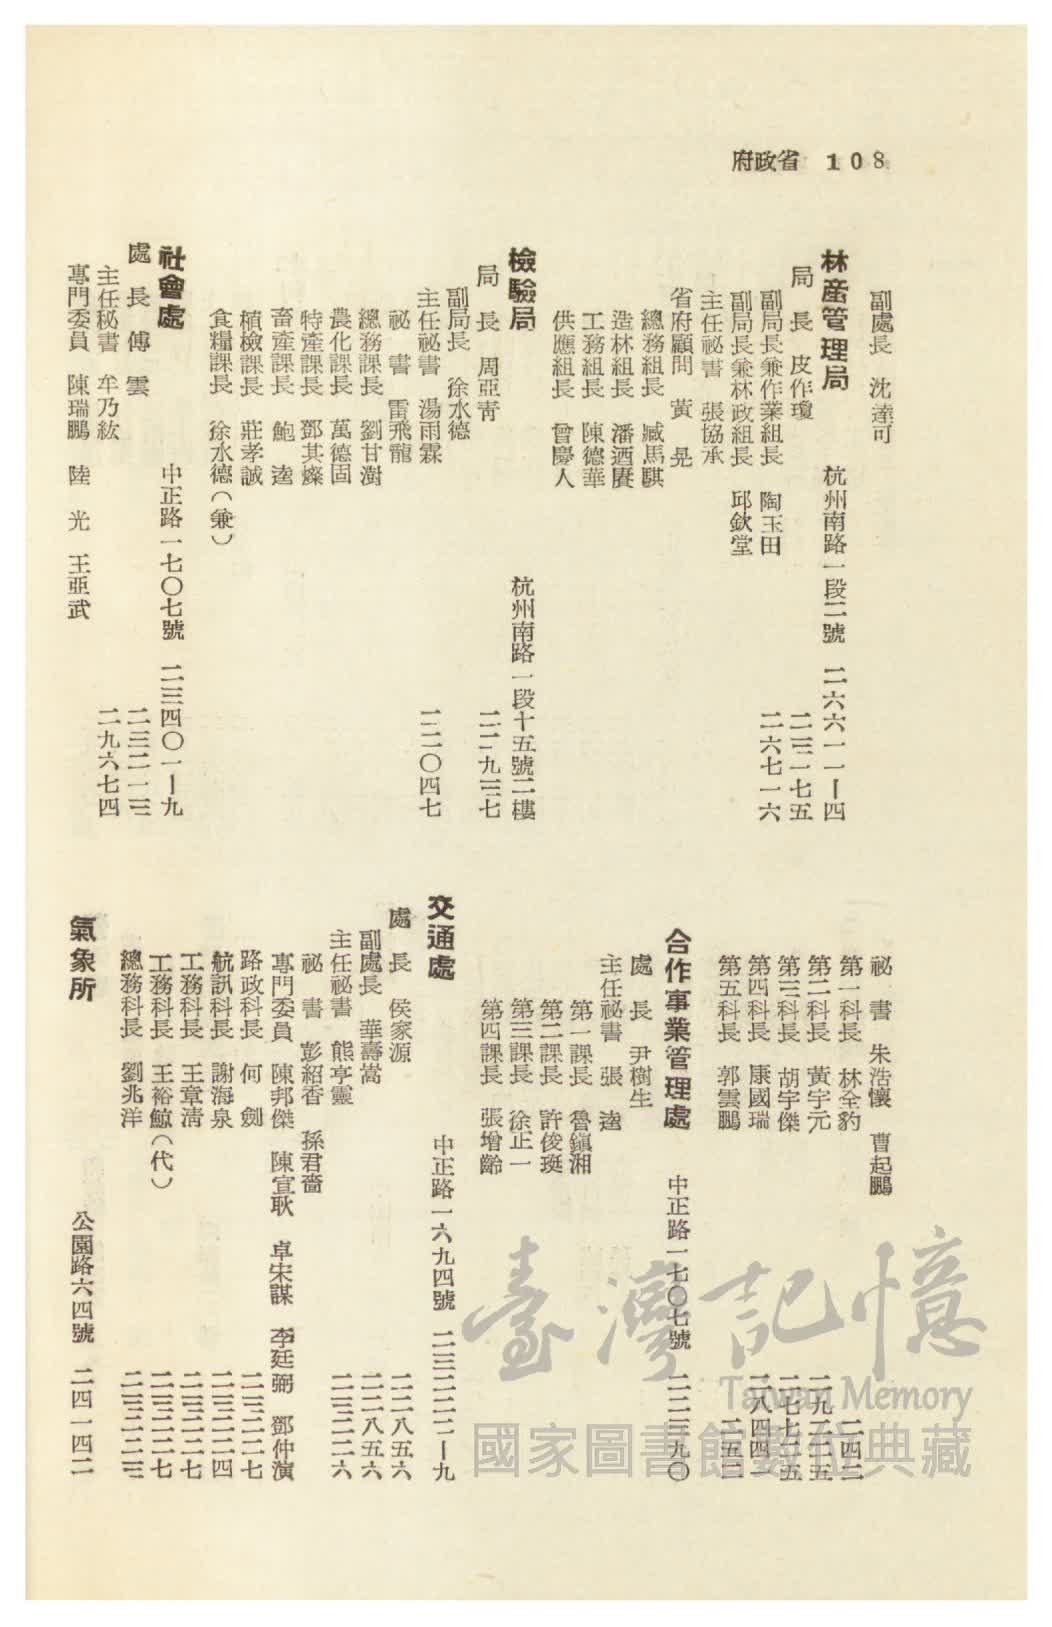 府政省 108
副處長 沈達可
林產管理局 杭州南路一段二號 二六六一一｜四
局長 皮作瓊 二三一七五
副局長兼作業組長 陶玉田 二六七一六
副局長兼林政組長 邱欽堂
主任祕書 張協承
省府顧問 黃晃
總務組長 臧馬騏
造林組長 潘迺賡
工務組長 陳德華
供應組長 曾慶人
檢驗局 杭州南路一段十五號二樓
局長 周亞青 二二九三七
副局長 徐水德
主任祕書 湯雨霖 二二〇四七
祕書 雷飛龍
總務課長 劉甘澍
農化課長 萬德固
特產課長 鄧其燦
畜產課長 鮑逵
植檢課長 莊孝誠
食糧課長 徐水德（兼）
社會處 中正路一七〇七號 二三四〇一｜九
處長 傅雲 二三二一三
主任秘書 牟乃紘 二九六七四
專門委員 陳瑞鵬 陸光 王亞武
祕書 朱浩懷 曹起鵬
第一科長 林全豹
第二科長 黃宇元
第三科長 胡宇傑
第四科長 康國瑞
第五科長 郭雲鵬
合作事業管理處 中正路一七〇七號 二二三九〇
處長 尹樹生
主任祕書 張逵
第一課長 魯鎭湘
第二課長 許俊珽
第三課長 徐正一
第四課長 張增齡
交通處 中正路一六九四號 二三二二一｜九
處長 侯家源 二二八五六
副處長 華壽嵩 二二八五六
主任祕書 熊亨靈 二三二二六
祕書 彭紹香 孫君嗇
專門委員 陳邦傑 陳宣耿 卓宋謀 李廷弼 鄧仲演
路政科長 何劍 二三二二七
航訊科長 謝海泉 二三二二四
工務科長 王章清 二三二二七
工務科長 王裕鯨（代） 二三二二七
總務科長 劉兆洋 二三二二三
氣象所 公園路六四號 二四一四二
臺灣記憶
Taiwan Memory
國家圖書館數位典藏